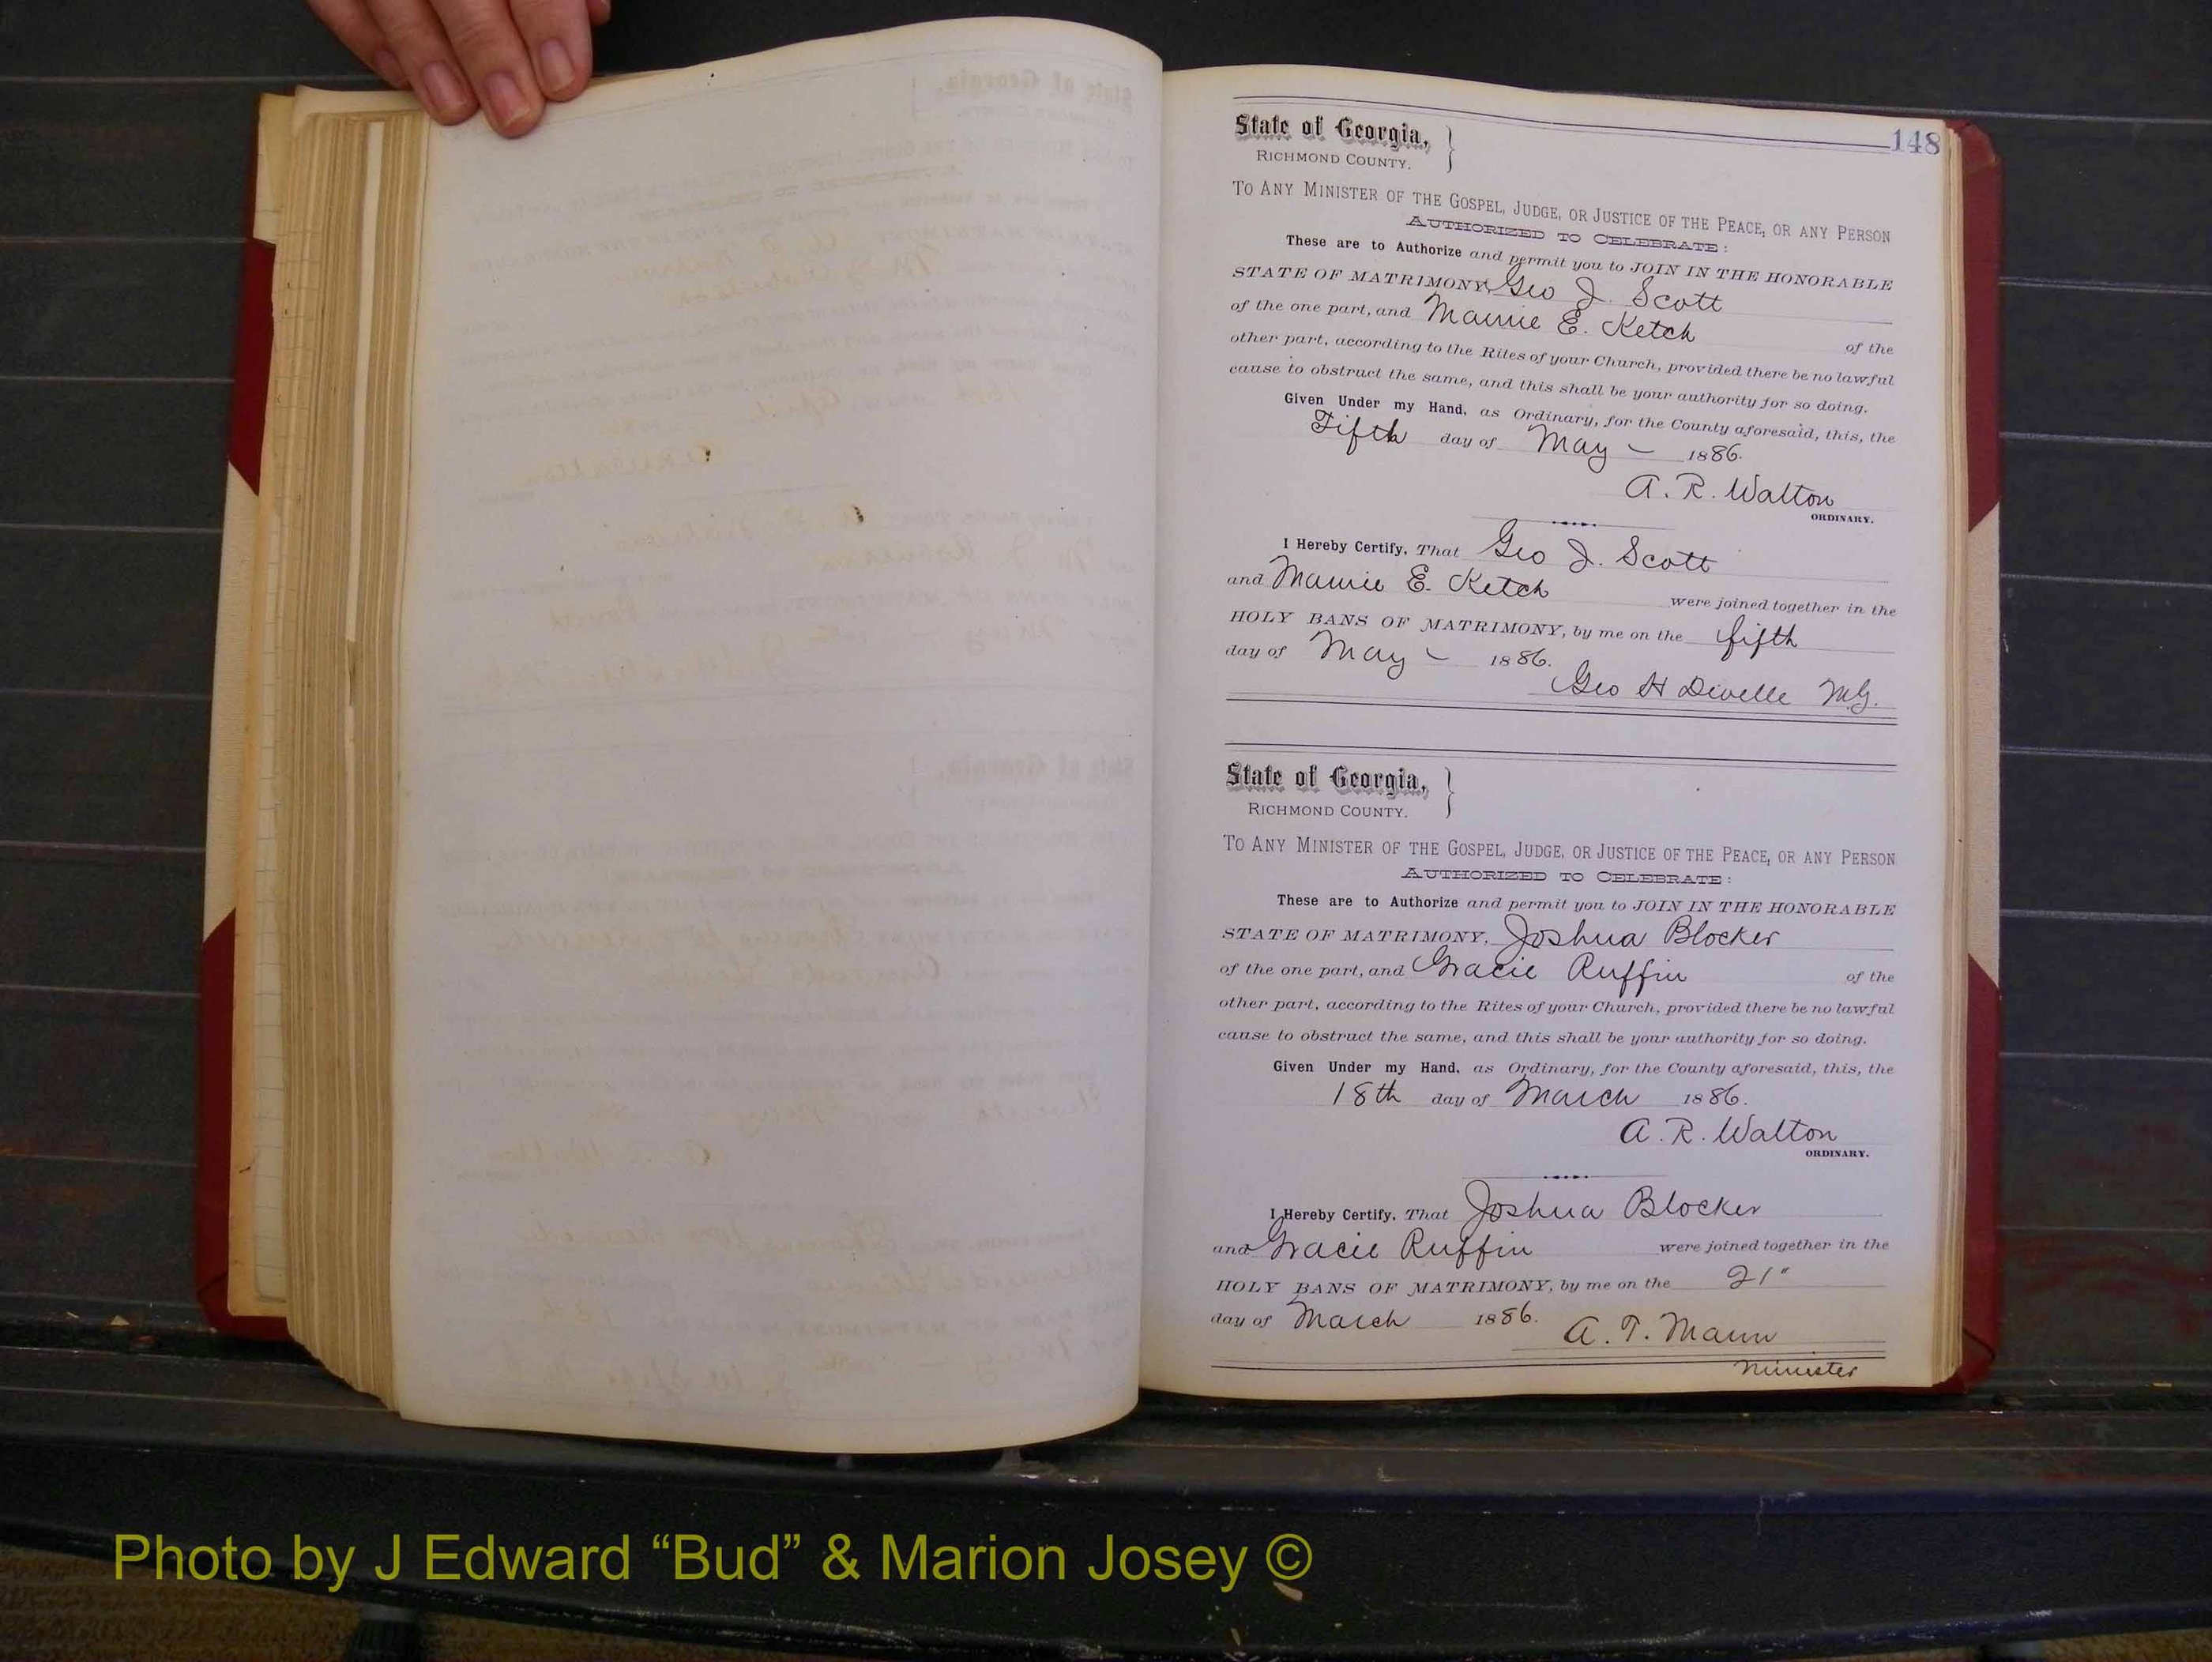 148
State of Georgia, }
RICHMOND COUNTY.
TO ANY MINISTER OF THE GOSPEL, JUDGE, OR JUSTICE OF THE PEACE, OR ANY PERSON
AUTHORIZED TO CELEBRATE:
These are to Authorize and permit you to JOIN IN THE HONORABLE
STATE OF MATRIMONY, Geo J. Scott
of the one part, and Mamie E. Ketch of the
other part, according to the Rites of your Church, provided there be no lawful
cause to obstruct the same, and this shall be your authority for so doing.
Given Under my Hand, as Ordinary, for the County aforesaid, this, the
Fifth day of May 1886.
A. R. Walton
ORDINARY.
I Hereby Certify, That Geo J. Scott
and Mamie E. Ketch were joined together in the
HOLY BANS OF MATRIMONY, by me on the fifth
day of May 1886.
Geo H Divelle M.G.
State of Georgia, }
RICHMOND COUNTY.
TO ANY MINISTER OF THE GOSPEL, JUDGE, OR JUSTICE OF THE PEACE, OR ANY PERSON
AUTHORIZED TO CELEBRATE:
These are to Authorize and permit you to JOIN IN THE HONORABLE
STATE OF MATRIMONY, Joshua Blocker
of the one part, and Gracie Ruffin of the
other part, according to the Rites of your Church, provided there be no lawful
cause to obstruct the same, and this shall be your authority for so doing.
Given Under my Hand, as Ordinary, for the County aforesaid, this, the
18th day of March 1886.
A. R. Walton
ORDINARY.
I Hereby Certify, That Joshua Blocker
and Gracie Ruffin were joined together in the
HOLY BANS OF MATRIMONY, by me on the 21"
day of March 1886.
A. T. Mann
Minister
Photo by J Edward “Bud” & Marion Josey ©